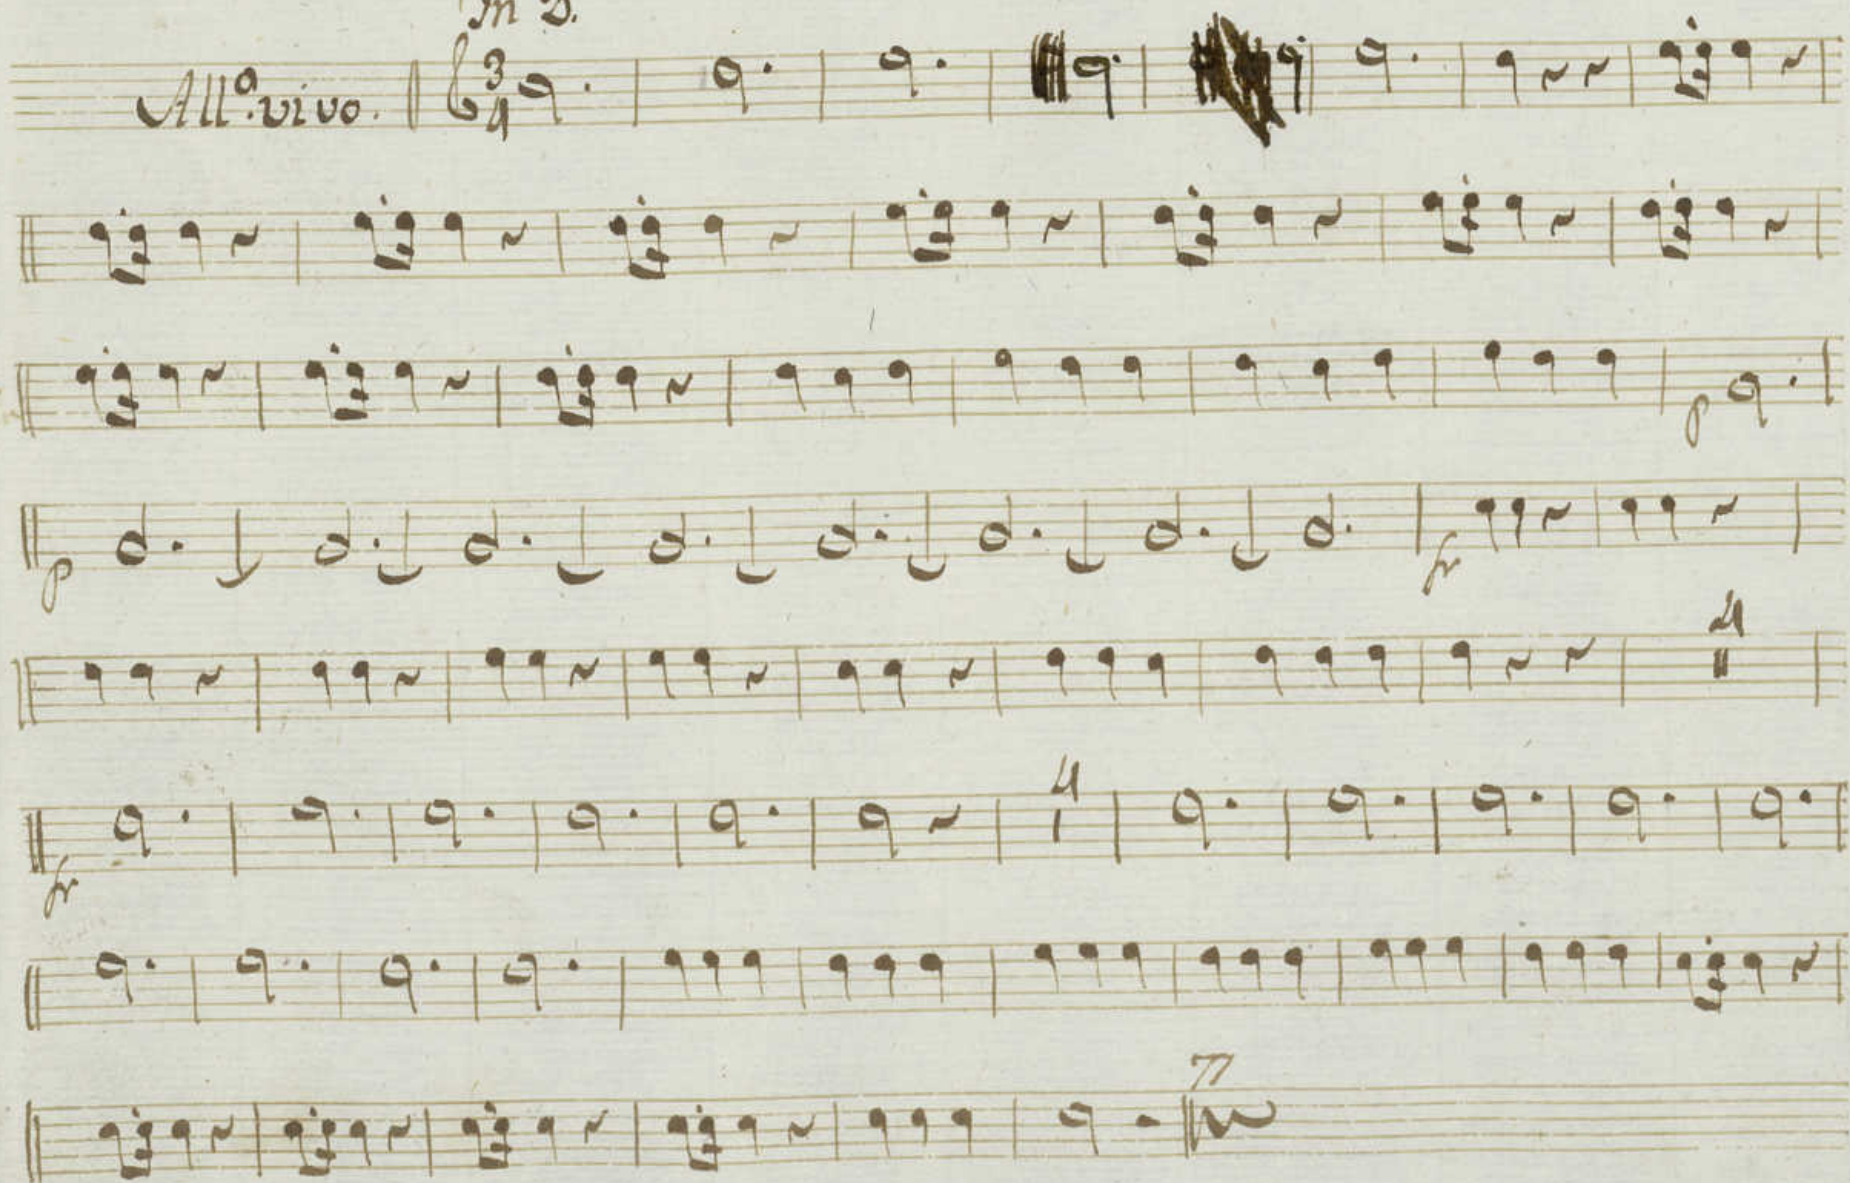 In D.
All.o vivo. 3 4
p
p fr
4
4
fr
77